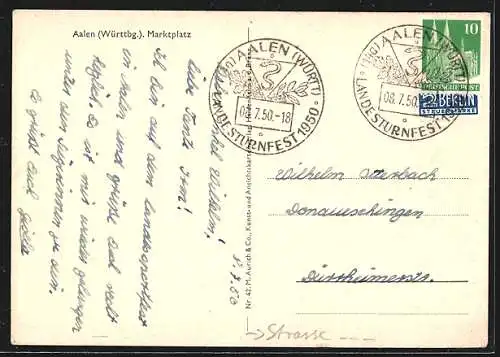 Aalen (Württbg.), Marktplatz
8.7.50
Lieber Onkel Wilhelm!
Liebe Tante Irm!
Ich bin auf dem Landessportfest
in Aalen und grüße Euch recht
herzlich. Es ist mir wieder gelungen
unter den Siegerinnen zu sein.
Es grüßt Euch
(14a) AALEN (WÜRTT)
08.7.50.-18
LANDESTURNFEST 1950
(14a) AALEN (WÜRTT)
08.7.50.-18
LANDESTURNFEST 1950
10
DEUTSCHE POST
2 BERLIN
STEUERMARKE
NOTOPFER
Wilhelm
Donaueschingen
Dürrheimerstr.
→ Strasse
Nr. 42: M. Aurich & Co., Kunst- und Ansichtskarten